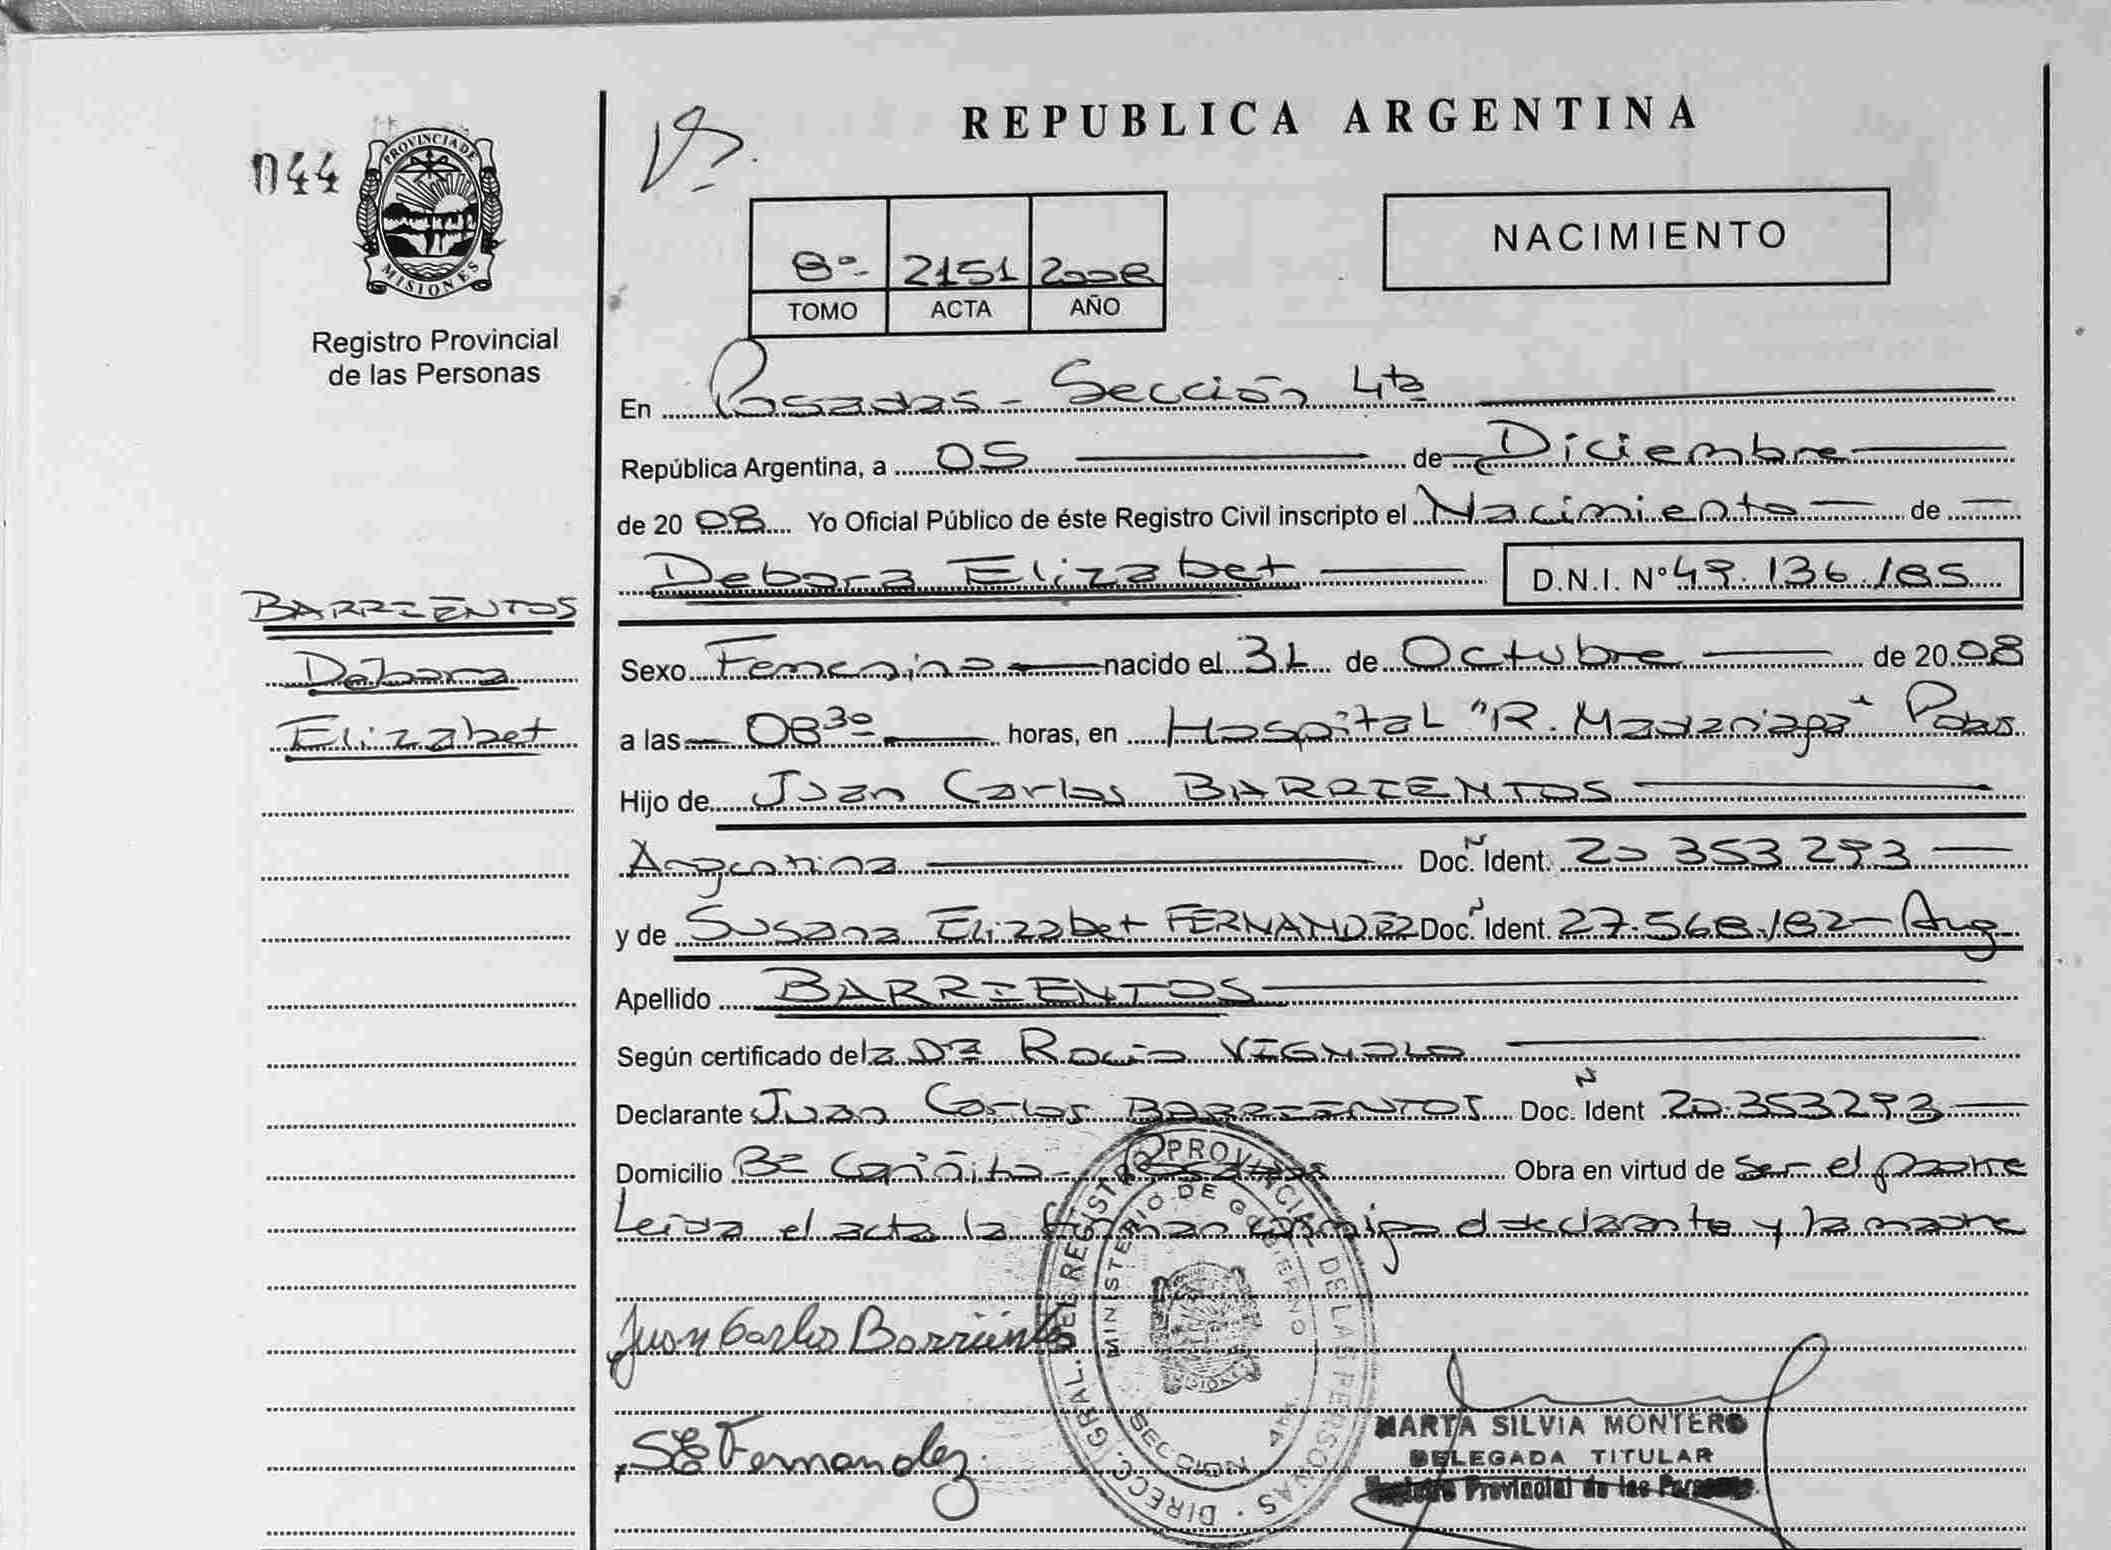 REPUBLICA ARGENTINA
044
PROVINCIA DE
MISIONES
Registro Provincial
de las Personas
8º 2151 2008
TOMO ACTA AÑO
NACIMIENTO
En Posadas - Sección 4ta
República Argentina, a 05 de Diciembre
de 2008 Yo Oficial Público de éste Registro Civil inscripto el Nacimiento de
Debora Elizabet D.N.I. Nº 49.136.185
BARRIENTOS
Debora
Elizabet
Sexo Femenino nacido el 31 de Octubre de 2008
a las 08 30 horas, en Hospital "R. Madariaga" Pdas
Hijo de Juan Carlos BARRIENTOS
Argentina Doc. Ident. 20 353 293
y de Susana Elizabet FERNANDEZ Doc. Ident. 27.568.182 - Arg
Apellido BARRIENTOS
Según certificado de la Dra Rocio VIGNOLO
Declarante Juan Carlos BARRIENTOS Doc. Ident 20.353293
Domicilio Bº Cariñito - Posadas Obra en virtud de ser el padre
Leida el acta la firman conmigo el declarante y la madre
Juan Carlos Barrientos
SE Fernandez
DIRECC. GRAL. DEL REGISTRO PROVINCIAL DE LAS PERSONAS
MINISTERIO DE GOBIERNO
SECCION 4ta.
MARTA SILVIA MONTERO
DELEGADA TITULAR
Registro Provincial de las Personas